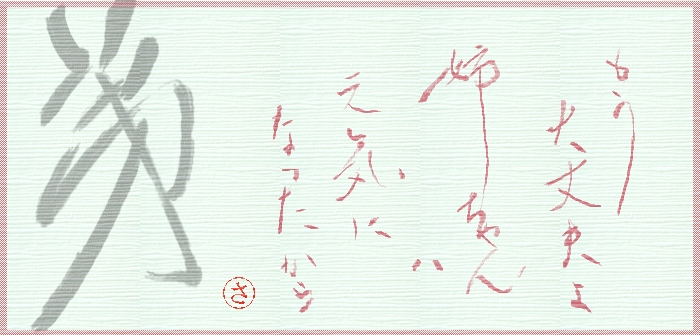 もう
大丈夫よ
姉ちゃん
ハ
元気に
なったから
さ